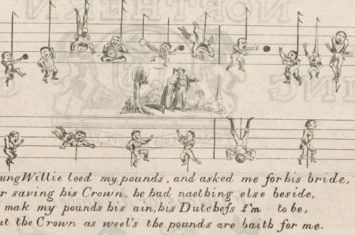 ung Willie loed my pounds, and asked me for his bride,
r saving his Crown, he had naething else beside,
mak my pounds his ain, his Dutchefs I'm to be,
ut the Crown as weel's the pounds are baith for me.